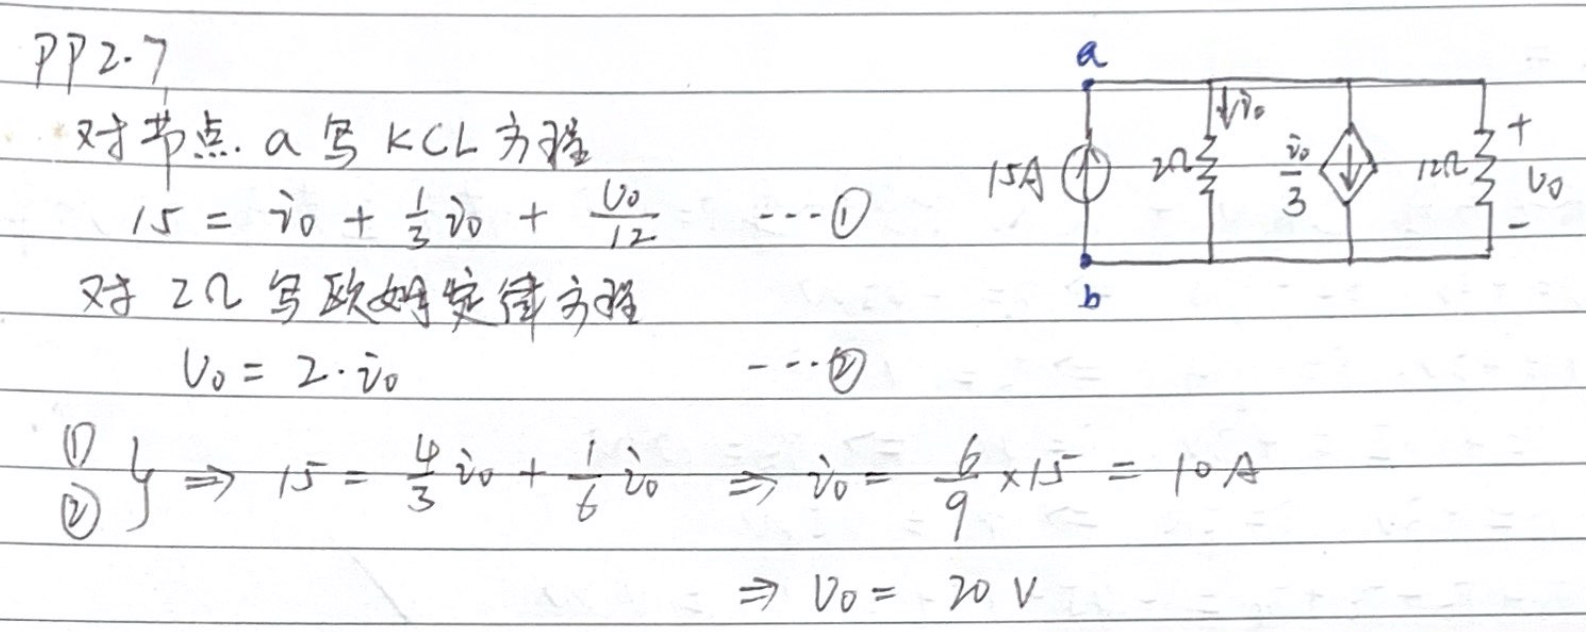 PP2.7
对节点.a写KCL方程
15 = i₀ + 1/3 i₀ + U₀/12 ---①
对2Ω写欧姆定律方程
U₀ = 2·i₀ ---②
①
② } ⇒ 15 = 4/3 i₀ + 1/6 i₀ ⇒ i₀ = 6/9 ×15 = 10A
⇒ U₀ = 20 V
a
↓i₀
15A
2Ω
i₀/3
12Ω
+
U₀
-
b